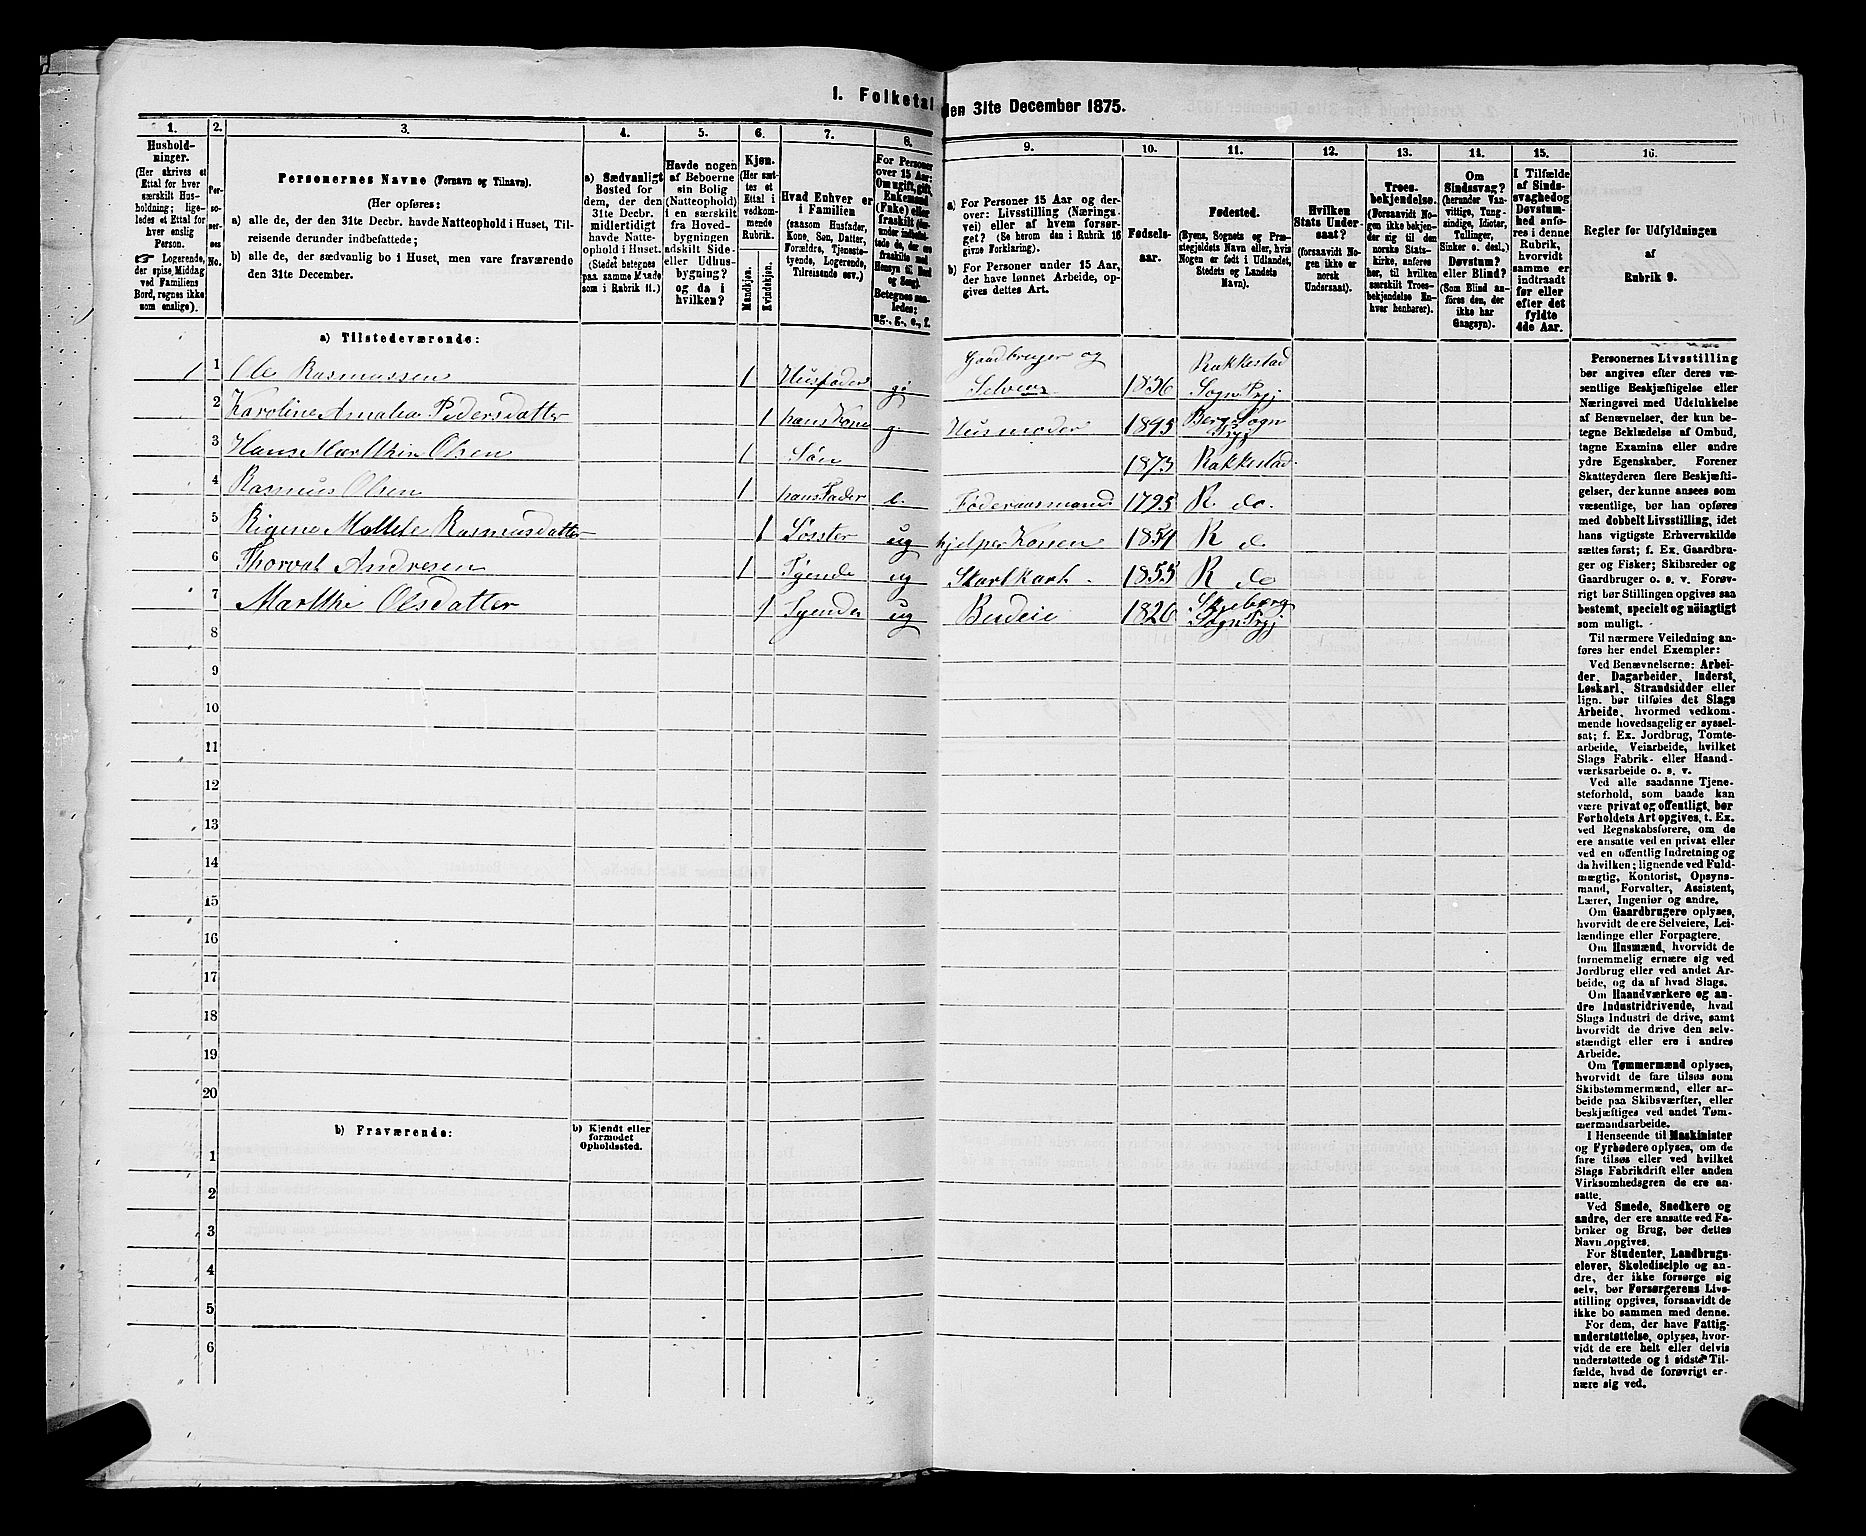 I. Folketal den 31te December 1875.
1. 2. 3. 4. 5. 6. 7. 8. 9. 10. 11. 12. 13. 14. 15. 16.
Hushold-
ninger.
(Her skrives et
Ettal for hver
særskilt Hus-
holdning; lige-
ledes et Ettal for
hver enslig
Person.
☛ Logerende,
der spise Middag
ved Familiens
Bord, regnes ikke
som enslige).
Per-
so-
ner-
nes
No.
Personernes Navne (Fornavn og Tilnavn).
(Her opføres:
a) alle de, der den 31te Decbr. havde Natteophold i Huset, Til-
reisende derunder indbefattede;
b) alle de, der sædvanlig bo i Huset, men vare fraværende
den 31te December.
a) Sædvanligt
Bosted for
dem, der den
31te Decbr.
midlertidigt
havde Natte-
ophold i Huset.
(Stedet betegnes
paa samme Maade
som i Rubrik 11.)
Havde nogen
af Beboerne
sin Bolig
(Natteophold)
i en særskilt
fra Hoved-
bygningen
adskilt Side-
eller Udhus-
bygning?
og da i
hvilken?
Kjøn.
(Her sæt-
tes et
Ettal i
vedkom-
mende
Rubrik.
Mandkjøn.
Kvindekjøn.
Hvad Enhver er
i Familien
(saasom Husfader,
Kone, Søn, Datter,
Forældre, Tjeneste-
tyende, Logerende,
Tilreisende osv.)
For Personer
over 15 Aar:
Om ugift, gift,
Enkemand
(Enke) eller
fraskilt
Betegnes saa-
ledes:
ug., g., e., f.
a) For Personer 15 Aar og der-
over: Livsstilling (Nærings-
vei) eller af hvem forsør-
get? (Se herom den i Rubrik 16
givne Forklaring).
b) For Personer under 15 Aar,
der have lønnet Arbeide, op-
gives dettes Art.
Fødsels-
aar.
Fødested.
(Byens, Sognets og Præ-
stegjeldets Navn eller, hvis
Nogen er født i Udlandet,
Stedets og Landets
Navn).
Hvilken
Stats Under-
saat?
(forsaavidt No-
gen ikke er
norsk
Undersaat).
Troes-
bekjendelse.
(Forsaavidt No-
gen ikke bekjen-
der sig til den
norske Stats-
kirke, anføres
her, til hvilken
særskilt Troes-
bekjendelse En-
hver henhører).
Om
Sindssvag?
(herunder Van-
vittige, Tung-
sindige, Idioter,
Tullinger,
Sinker o. desl.)
Døvstum?
eller Blind?
(Som Blind an-
føres den, der
ikke har
Gangsyn).
I Tilfælde
af Sinds-
svaghed og
Døvstum-
hed anfø-
res i denne
Rubrik,
hvorvidt
samme er
indtraadt
før eller
efter det
fyldte
4de Aar.
Regler før Udfyldningen
af
Rubrik 9.
a) Tilstedeværende:
1 1 Ole Rasmussen 1 Husfader g. Gaardbruger og Selveier 1836 Rakkestad Sogn Prgj
2 Karoline Amalia Pedersdatter 1 hans Kone g. Husmoder Berg Sogn Prgj
3 Hans Marthin Olsen 1 Søn 1873 Rakkestad
4 Rasmus Olsen 1 hans Fader e. Føderaasmand 1795 R do.
5 Rigine Mathilde Rasmusdatter 1 Søster ug hjelper Konen 1851 R do
6 Thorval Andresen 1 Tyende ug 1855 R do
7 Marthe Olsdatter 1 Tyende ug Budeie 1820 Skjeberg Sogn Prgj
8
9
10
11
12
13
14
15
16
17
18
19
20
b) Fraværende:
b) Kjendt eller
formodet
Opholdssted.
1
2
3
4
5
6
Personernes Livsstilling
bør angives efter deres væ-
sentlige Beskjæftigelse eller
Næringsvei med Udelukkelse
af Benævnelser, der kun be-
tegne Beklædelse af Ombud,
tagne Examina eller andre
ydre Egenskaber. Forener
Skatteyderen flere Beskjæfti-
gelser, der kunne ansees som
væsentlige, bør han opføres
med dobbelt Livsstilling, idet
hans vigtigste Erhvervskilde
sættes først; f. Ex. Gaardbru-
ger og Fisker; Skibsreder og
Gaardbruger o. s. v. Forøv-
rigt bør Stillingen opgives saa
bestemt, specielt og nöiagtigt
som muligt.
Til nærmere Veiledning an-
føres her endel Exempler:
Ved Benævnelserne: Arbei-
der, Dagarbeider, Inderst,
Løskarl, Strandsidder eller
lign. bør tilføies det Slags
Arbeide, hvormed vedkom-
mende hovedsagelig er syssel-
sat; f. Ex. Jordbrug, Tomte-
arbeide, Veiarbeide, hvilket
Slags Fabrik- eller Haand-
værksarbeide o. s. v.
Ved alle saadanne Tjene-
steforhold, som baade kan
være privat og offentligt, bør
Forholdets Art opgives, t. Ex.
ved Regnskabsførere, om de
ere ansatte ved en privat eller
ved en offentlig Indretning og
da hvilken; lignende ved Fuld-
mægtig, Kontorist, Opsyns-
mand, Forvalter, Assistent,
Lærer, Ingeniør og andre.
Om Gaardbrugere oplyses,
hvorvidt de ere Selveiere, Lei-
lændinge eller Forpagtere.
Om Husmænd, hvorvidt de
fornemmelig ernære sig ved
Jordbrug eller ved andet Ar-
beide, og da af hvad Slags.
Om Haandværkere og an-
dre Industridrivende, hvad
Slags Industri de drive, samt
hvorvidt de drive den selv-
stændigt eller ere i andres
Arbeide.
Om Tømmermænd oplyses,
hvorvidt de fare tilsøs som
Skibstømmermænd, eller ar-
beide paa Skibsværfter, eller
beskjæftiges ved andet Tøm-
mermandsarbeide.
I Henseende til Maskinister
og Fyrbødere oplyses, om de
fare tilsøs eller ved hvilket
Slags Fabrikdrift eller anden
Virksomhedsgren de ere an-
satte.
Ved Smede, Snedkere og
andre, der ere ansatte ved Fa-
briker og Brug, bør dettes
Navn opgives.
For Studenter, Landbrugs-
elever, Skoledisciple og an-
dre, der ikke forsørge sig
selv, bør Forsørgerens Livs-
stilling opgives, forsaavidt de
ikke bo sammen med denne.
For dem, der have Fattig-
understøttelse, oplyses, hvor-
vidt de ere helt eller delvis
understøttede og i sidste Til-
fælde, hvad de forøvrigt er-
nære sig ved.